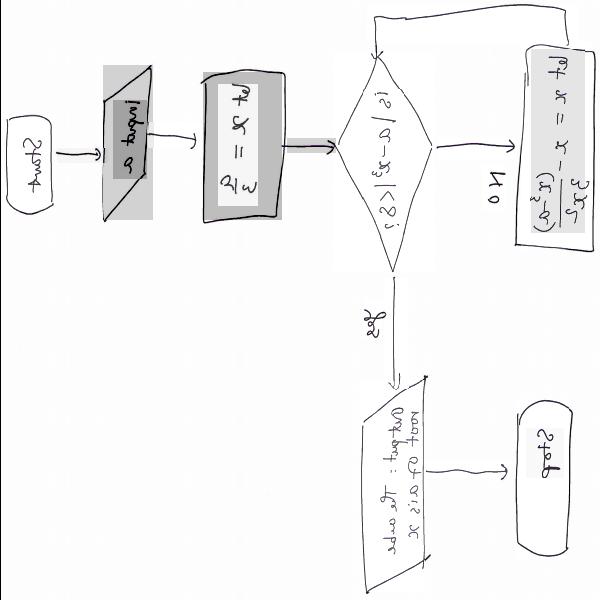 Start
input a
let x = a/3
is |a-x³|<ε?
no
let x = x - (x³-a)/3x²
yes
output: The cube
root of a is x
Stop